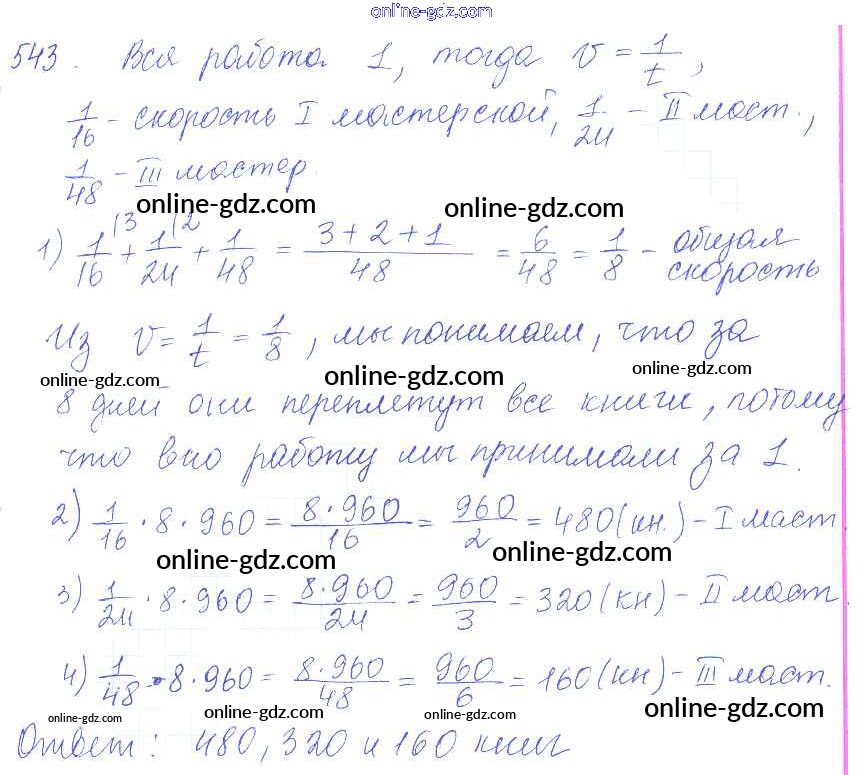 online-gdz.com
543. Вся работа 1, тогда v = 1/t,
1/16 - скорость I мастерской, 1/24 - II маст.,
1/48 - III мастер.
online-gdz.com online-gdz.com
1) 1/16 (3 + 1/24 (2 + 1/48 = 3+2+1/48 = 6/48 = 1/8 - общая скорость
Из v = 1/t = 1/8, мы понимаем, что за
online-gdz.com online-gdz.com online-gdz.com
8 дней они переплетут все книги, потому
что всю работу мы принимали за 1.
2) 1/16 · 8 · 960 = 8·960/16 = 960/2 = 480 (кн.) - I маст.
online-gdz.com online-gdz.com
3) 1/24 · 8 · 960 = 8·960/24 = 960/3 = 320 (кн) - II маст
4) 1/48 · 8 · 960 = 8·960/48 = 960/6 = 160 (кн) - III маст.
online-gdz.com online-gdz.com online-gdz.com online-gdz.com
Ответ: 480, 320 и 160 книг